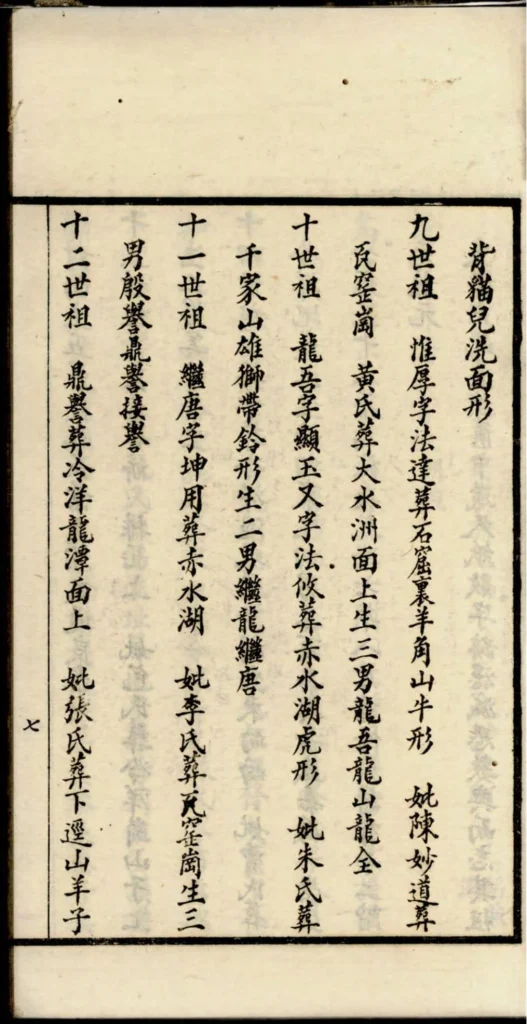 背貓兒洗面形
九世祖　惟厚字法達葬石窟裏羊角山牛形　妣陳妙道葬
瓦窰崗　黃氏葬大水洲面上生三男龍吾龍山龍全
十世祖　龍吾字顯玉又字法攸葬赤水湖虎形　妣朱氏葬
千家山雄獅帶鈴形生二男繼龍繼唐
十一世祖　繼唐字坤用葬赤水湖　妣李氏葬瓦窰崗生三
男殷譽鼎譽接譽
十二世祖　鼎譽葬冷洋龍潭面上　妣張氏葬下逕山羊子
七